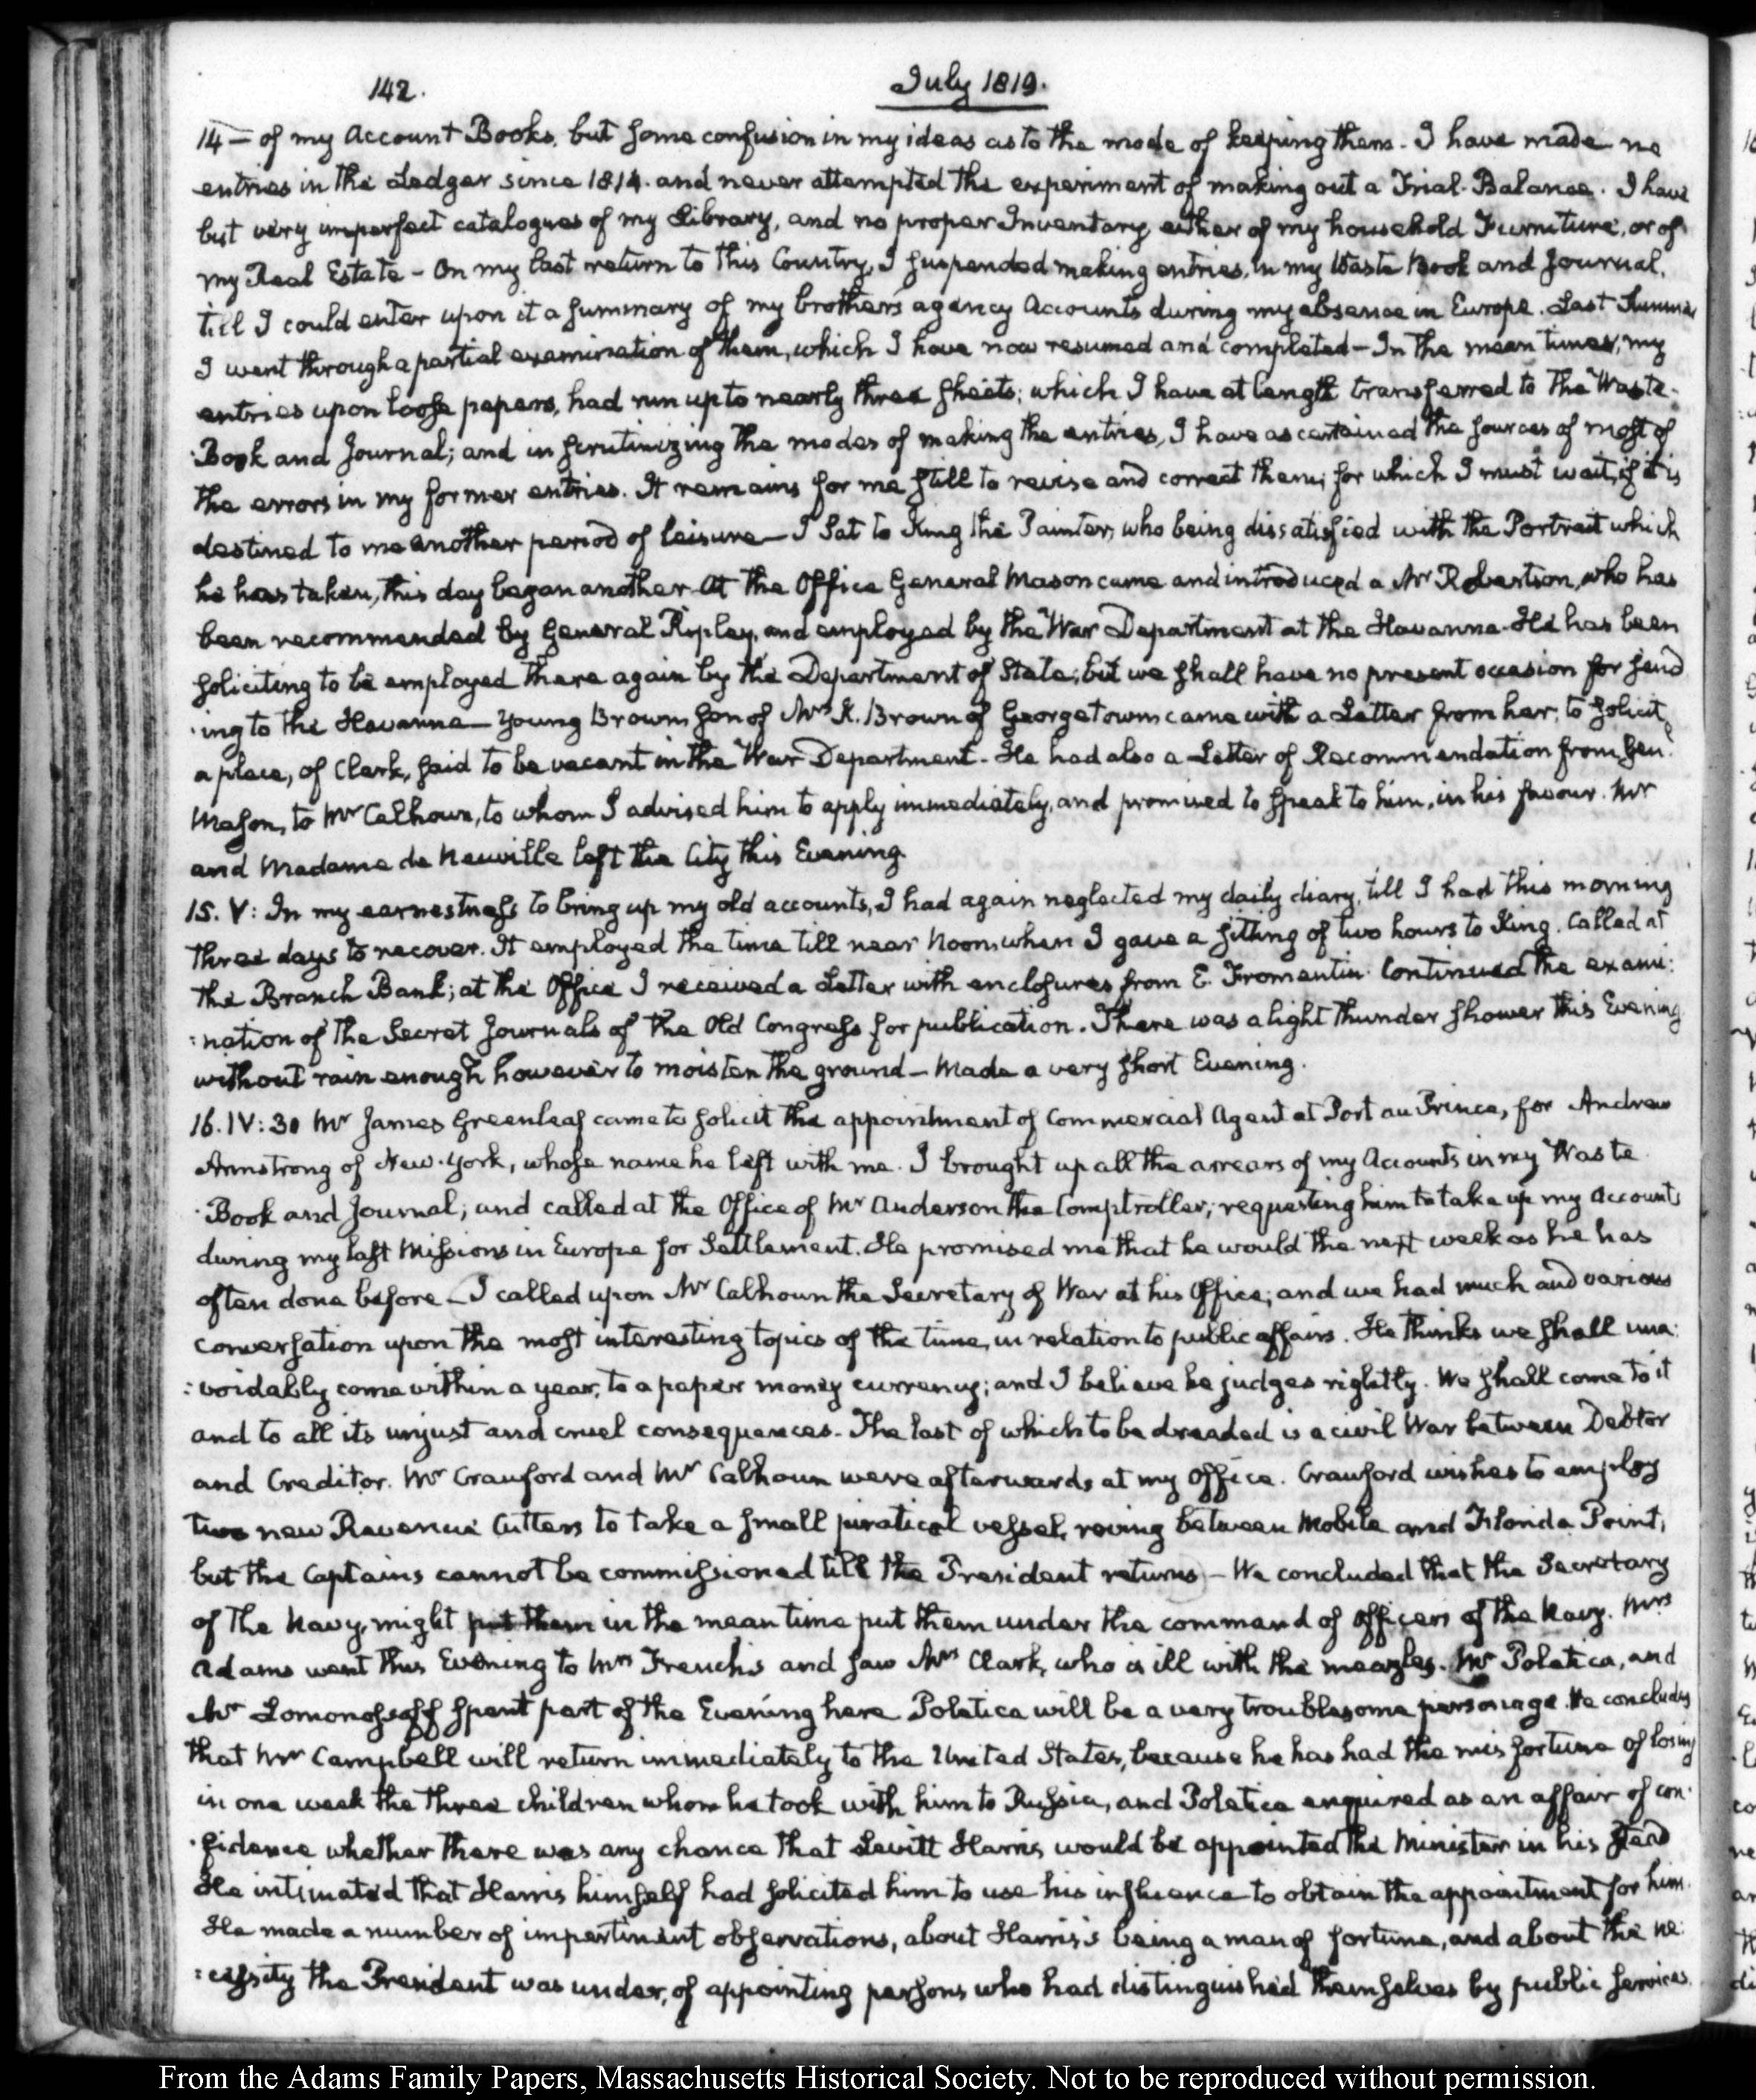 142.
July 1819.
14 — of my Account Books, but some confusion in my ideas as to the mode of keeping them. I have made no
entries in the Ledger since 1814. and never attempted the experiment of making out a Trial-Balance. I have
but very imperfect catalogues of my Library, and no proper Inventory either of my household Furniture, or of
my Real Estate — On my last return to this Country, I suspended making entries, in my Waste Book and Journal,
till I could enter upon it a summary of my brother's agency Accounts during my absence in Europe. Last Summer
I went through a partial examination of them, which I have now resumed and completed — In the mean time, my
entries upon loose papers, had run up to nearly three sheets; which I have at length transferred to the Waste-
Book and Journal; and in scrutinizing the modes of making the entries, I have ascertained the sources of most of
the errors in my former entries. It remains for me still to revise and correct them; for which I must wait, if it is
destined to me another period of leisure — I sat to King the Painter, who being dissatisfied with the Portrait which
he has taken, this day began another. At the Office General Mason came and introduced a Mr Robertson, who has
been recommended by General Ripley, and employed by the War Department at the Havanna. He has been
soliciting to be employed there again by the Department of State; but we shall have no present occasion for send
:ing to the Havanna — Young Brown, son of Mrs K. Brown of Georgetown came with a Letter from her, to solicit
a place, of Clerk, said to be vacant in the War Department. He had also a Letter of Recommendation from Genl
Mason, to Mr Calhoun, to whom I advised him to apply immediately, and promised to speak to him, in his favour. Mr
and Madame de Neuville left the City this Evening.
15. V: In my earnestness to bring up my old accounts, I had again neglected my daily diary, till I had this morning
three days to recover. It employed the time till near Noon, when I gave a sitting of two hours to King. Called at
the Branch Bank; at the Office I received a Letter with enclosures from E. Fromentin. Continued the exami:
:nation of the Secret Journals of the Old Congress for publication. There was a light thunder shower this Evening
without rain enough however to moisten the ground — Made a very short Evening.
16. IV: 30 Mr James Greenleaf came to solicit the appointment of Commercial Agent at Port au Prince, for Andrew
Armstrong of New-York, whose name he left with me. I brought up all the arrears of my Accounts in my Waste
Book and Journal; and called at the Office of Mr Anderson the Comptroller; requesting him to take up my Accounts
during my last Missions in Europe for Settlement. He promised me that he would the next week as he has
often done before — I called upon Mr Calhoun the Secretary of War at his Office; and we had much and various
conversation upon the most interesting topics of the time, in relation to public affairs. He thinks we shall una:
:voidably come within a year, to a paper money currency; and I believe he judges rightly. We shall come to it
and to all its unjust and cruel consequences. The last of which to be dreaded is a civil War between Debtor
and Creditor. Mr Crawford and Mr Calhoun were afterwards at my Office. Crawford wishes to employ
two new Revenue Cutters to take a small piratical vessel, roving between Mobile and Florida Point,
but the Captains cannot be commissioned till the President returns — We concluded that the Secretary
of the Navy, might put them in the mean time put them under the command of officers of the Navy. Mrs
Adams went this Evening to Mrs French's and saw Mrs Clark, who is ill with the meazles. Mr Poletica, and
Mr Lomonossoff spent part of the Evening here. Poletica will be a very troublesome personage. He concludes
that Mr Campbell will return immediately to the United States, because he has had the misfortune of losing
in one week the three children whom he took with him to Russia, and Poletica enquired as an affair of con:
:fidence whether there was any chance that Levitt Harris, would be appointed the Minister in his stead
He intimated that Harris himself had solicited him to use his influence to obtain the appointment for him.
He made a number of impertinent observations, about Harris's being a man of fortune, and about the ne:
:cessity the President was under, of appointing persons who had distinguished themselves by public services.
From the Adams Family Papers, Massachusetts Historical Society. Not to be reproduced without permission.